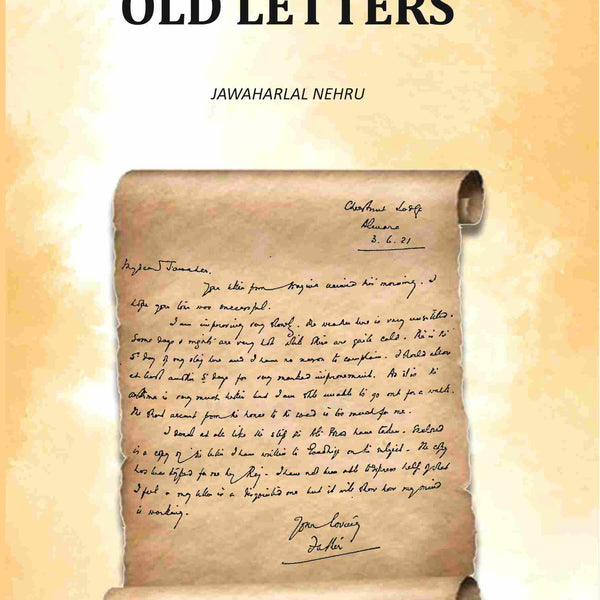 OLD LETTERS
JAWAHARLAL NEHRU
Chestnut Lodge
Almora
3.6.21
My dear Jawahar,
Your letter from received this morning. I
hope your tour was successful.
I am improving very slowly. The weather here is very unsettled.
Some days & nights are very hot while others are quite cold. This is the
5th day of my stay here and I have no reason to complain. I should allow
at least another 5 days for very marked improvement. As it is the
asthma is very much better but I am still unable to go out for a walk.
The short ascent from the house to the road is too much for me.
I do not at all like the step the Ali Bros have taken. Enclosed
is a copy of the letter I have written to Gandhiji on the subject. The copy
has been typed for me by Raj. I have not been able to express half of what
I feel & my letter is a disjointed one but it will show how my mind
is working.
Your loving
Father